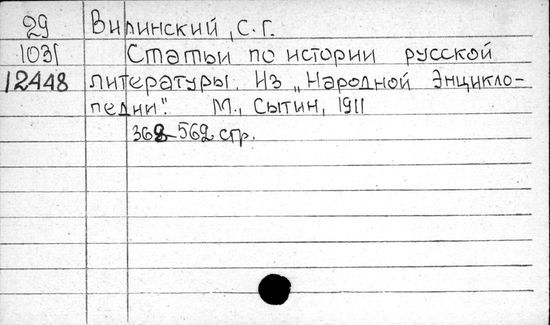 29 Вилинский, С. Г.
1031 Статьи по истории русской
12448 литературы. Из „Народной Энцикло-
педии". М., Сытин, 1911
368-562 стр.